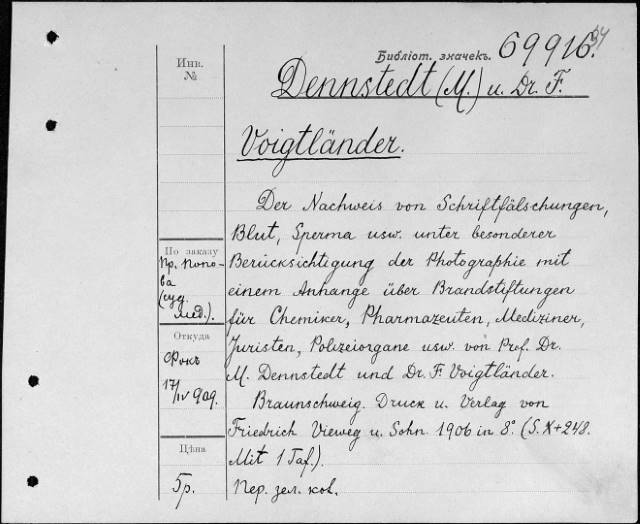 Библіот. значекъ. 69916.
Инв.
№
Dennstedt (M.) u. Dr. F.
Voigtländer.
Der Nachweis von Schriftfälschungen,
Blut, Sperma usw. unter besonderer
Berücksichtigung der Photographie mit
einem Anhange über Brandstiftungen
für Chemiker, Pharmazeuten, Mediziner,
Juristen, Polizeiorgane usw. von Prof. Dr.
M. Dennstedt und Dr. F. Voigtländer.
Braunschweig. Druck u. Verlag von
Friedrich Vieweg u. Sohn. 1906 in 8° (S. X+248.
Mit 1 Taf.).
Пер. зел. ков.
По заказу
Пр. Попо-
ва
(суд.
мед.).
Откуда
Фокъ
17/IV 909.
Цѣна
5р.